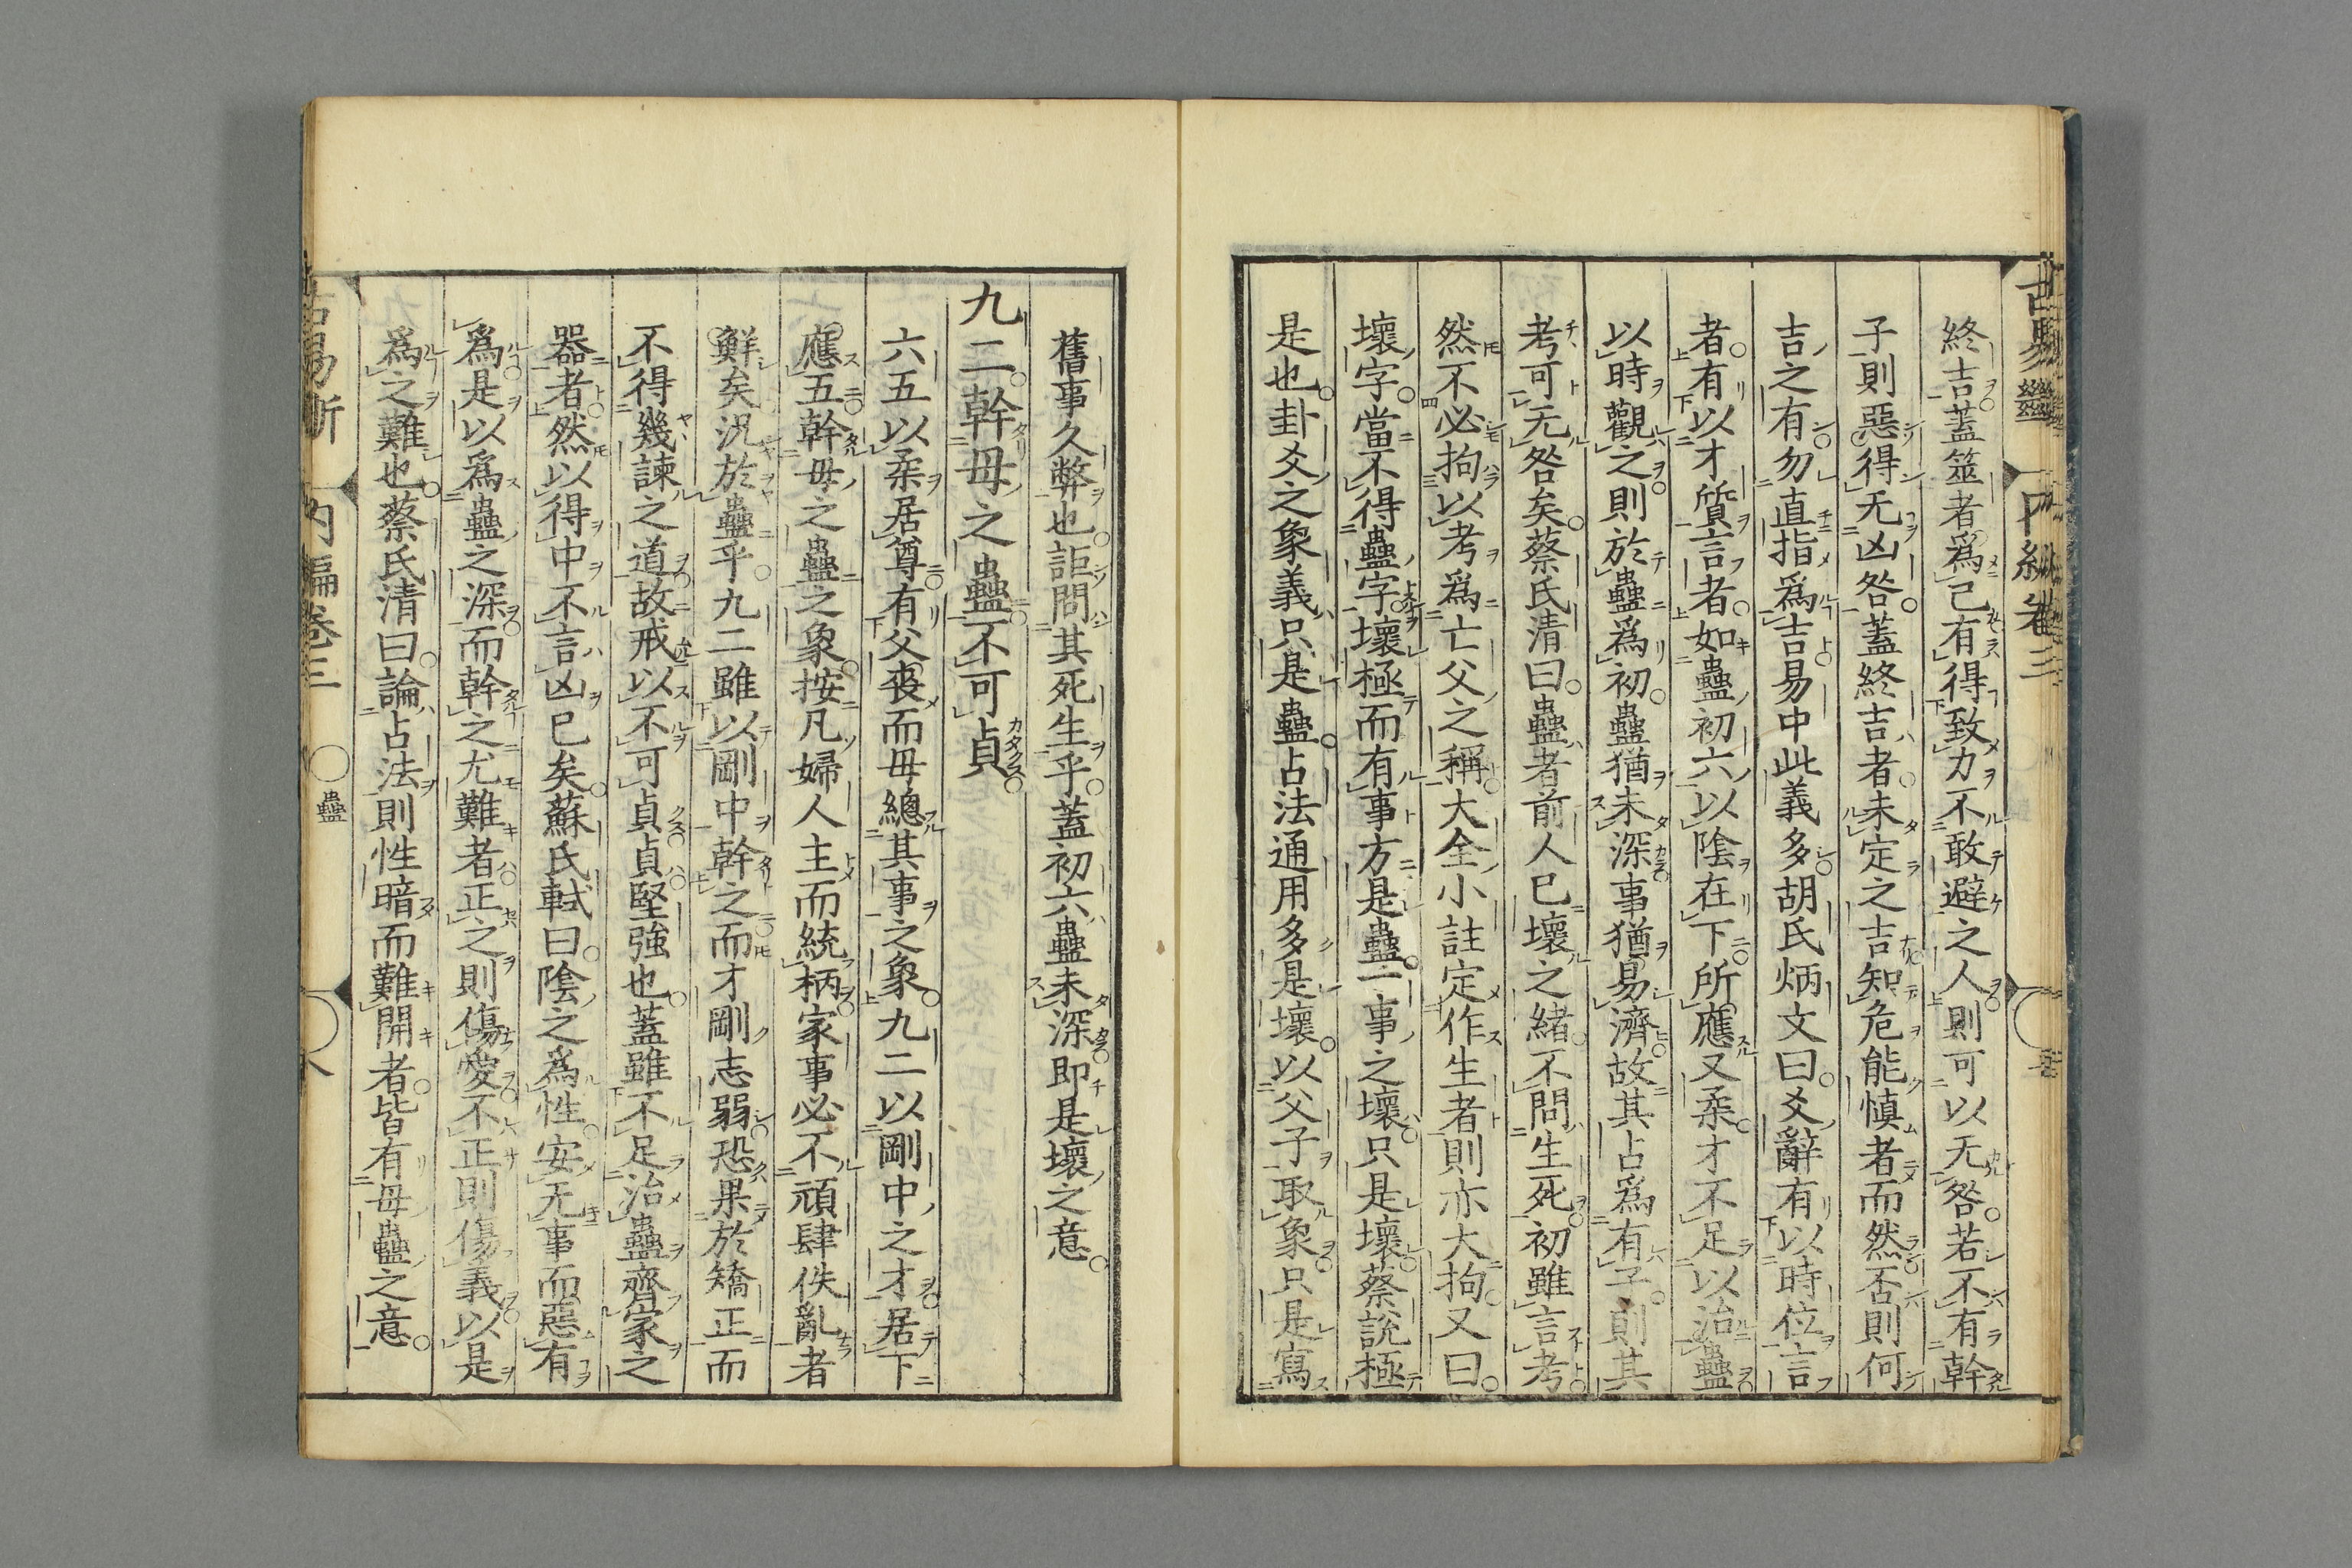 終吉蓋筮者爲己有得致力不敢避之人則可以无咎若不有幹
子則惡得无凶咎蓋終吉者未定之吉知危能愼者而然否則何
吉之有勿直指爲吉易中此義多胡氏炳文曰爻辭有以時位言
者有以才質言者如蠱初六以陰在下所應又柔才不足以治蠱
以時觀之則於蠱爲初蠱猶未深事猶易濟故其占爲有子則其
考可无咎矣蔡氏清曰蠱者前人已壞之緒不問生死初雖言考
然不必拘以考爲亡父之稱大全小註定作生者則亦大拘又曰
壞字當不得蠱字壞極而有事方是蠱一事之壞只是壞蔡說極
是也卦爻之象義只是蠱占法通用多是壞以父子取象只是寫
舊事久弊也詎問其死生乎蓋初六蠱未深即是壞之意
九二幹母之蠱不可貞
六五以柔居尊有父喪而母總其事之象九二以剛中之才居下
應五幹母之蠱之象按凡婦人主而統柄家事必不頑肆佚亂者
鮮矣況於蠱乎九二雖以剛中幹之而才剛志弱恐果於矯正而
不得幾諫之道故戒以不可貞貞堅強也蓋雖不足治蠱齊家之
器者然以得中不言凶已矣蘇氏軾曰陰之爲性安无事而惡有
爲是以爲蠱之深而幹之尤難者正之則傷愛不正則傷義以是
爲之難也蔡氏清曰論占法則性暗而難開者皆有母蠱之意
易斷 內編卷三 蠱